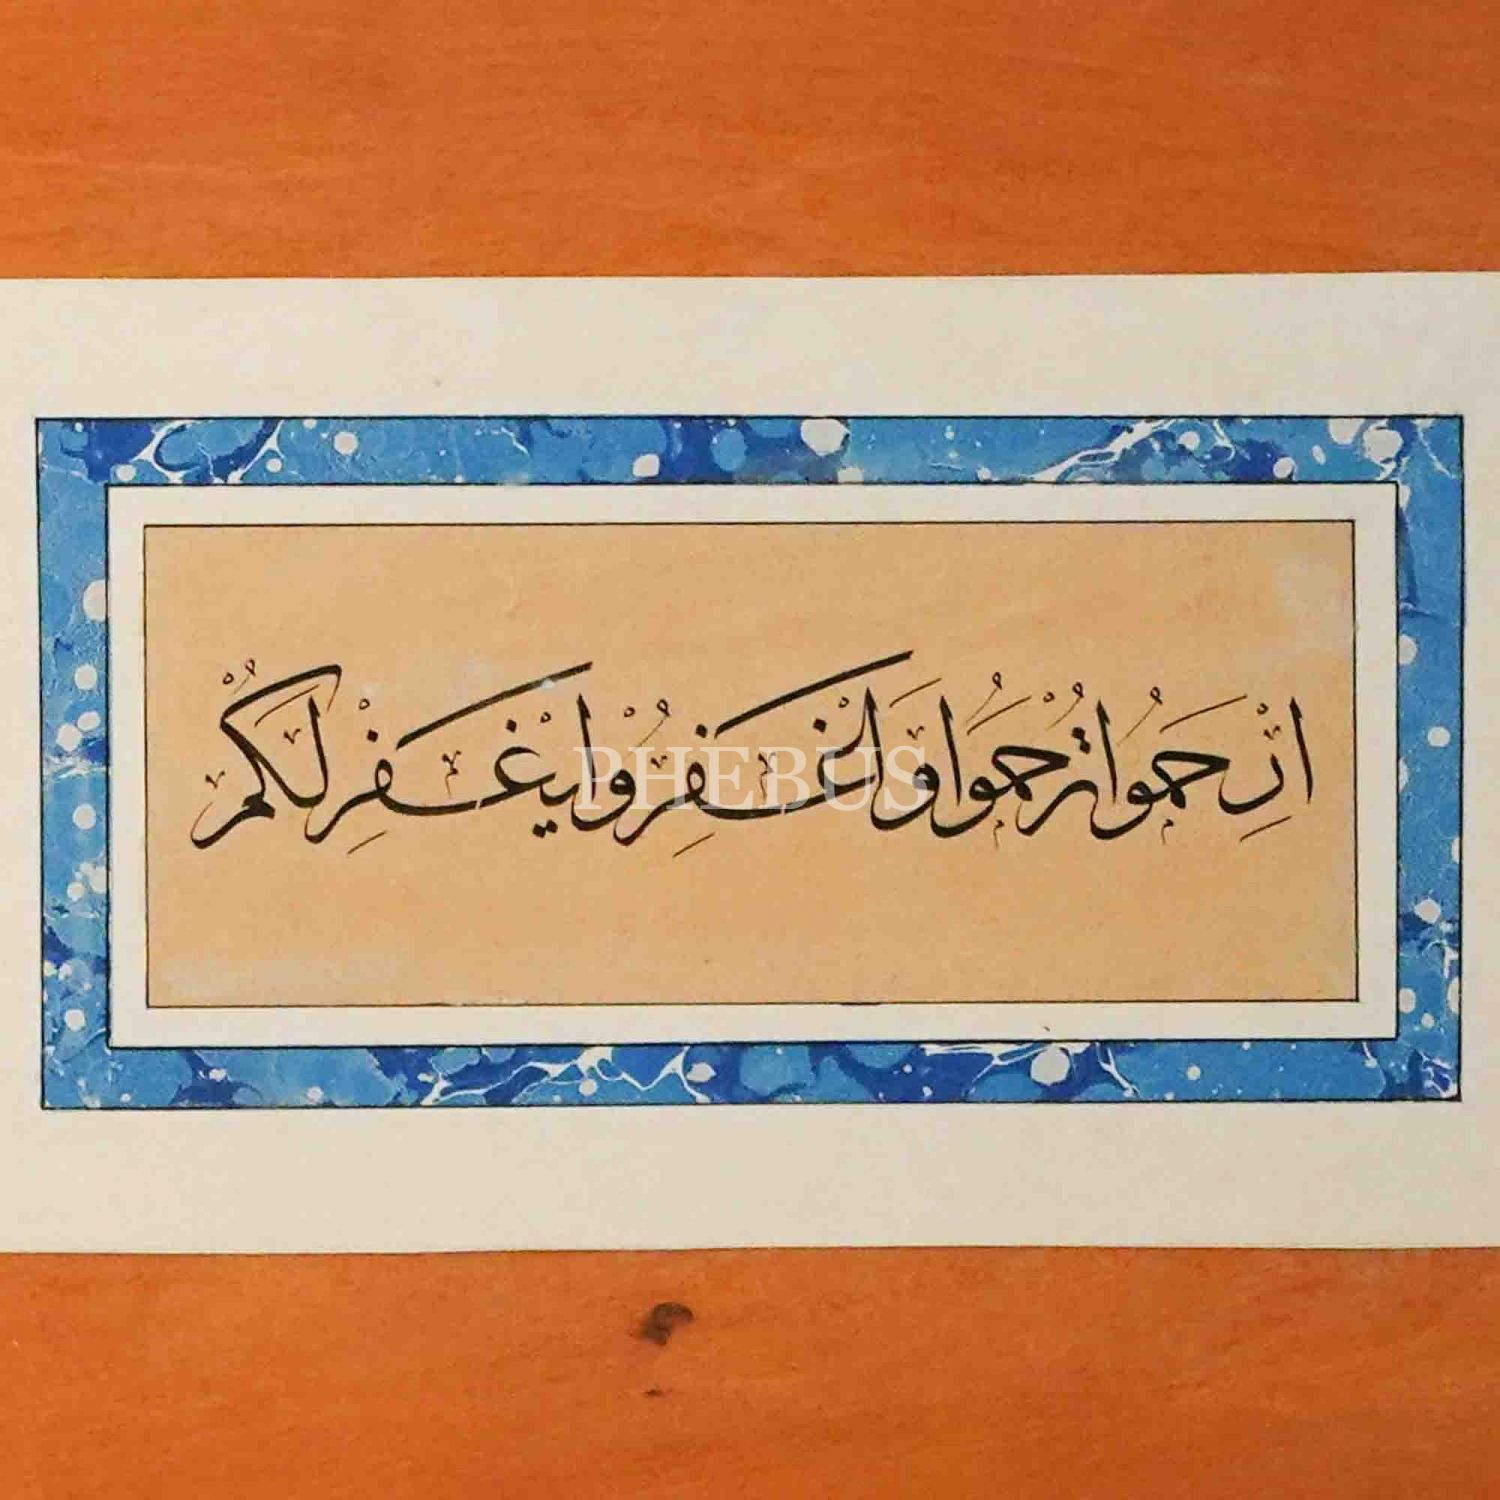 اِرْحَمُوا تُرْحَمُوا وَاغْفِرُوا يُغْفَرْ لَكُمْ
PHEBUS